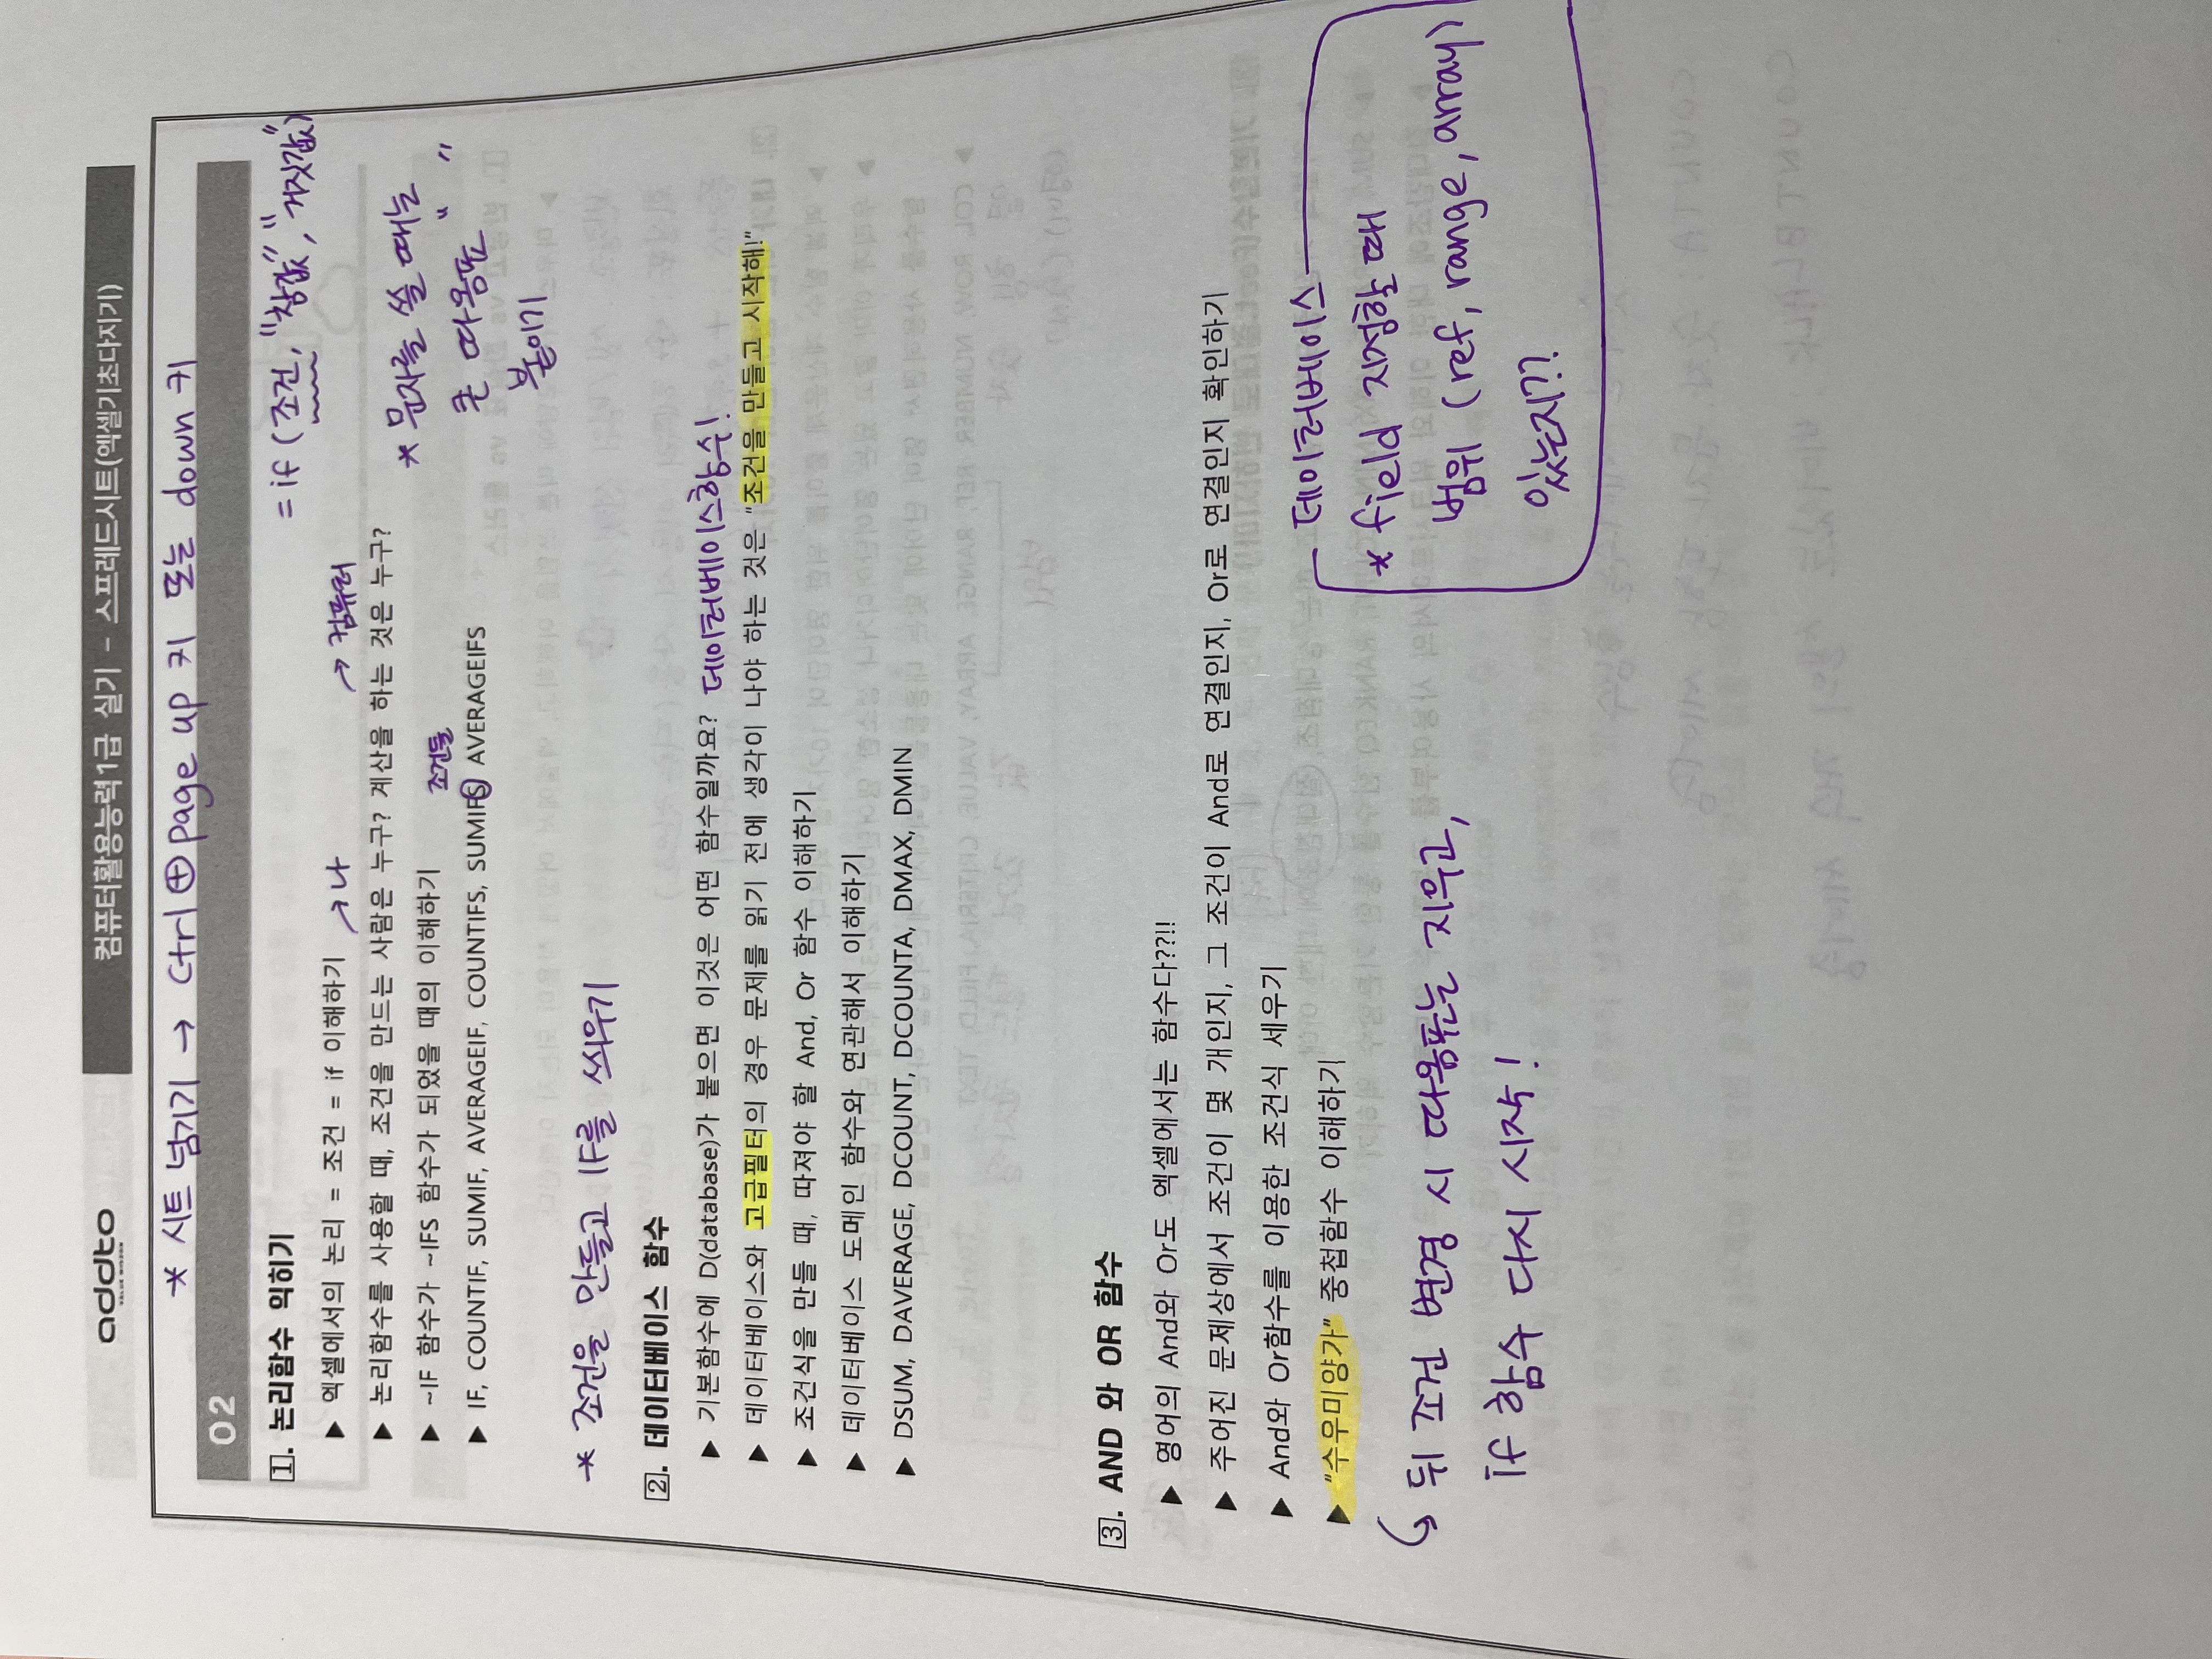 addto
컴퓨터활용능력1급 실기 - 스프레드시트(엑셀기초다지기)
* 시트 넘기기 → ctrl ⊕ page up 키 또는 down 키
02
1. 논리함수 익히기
= if (조건, "참값", "거짓값")
▶ 엑셀에서의 논리 = 조건 = if 이해하기
↗ 나
↗ 컴퓨터
▶ 논리함수를 사용할 때, 조건을 만드는 사람은 누구? 계산을 하는 것은 누구?
* 문자를 쓸 때는
큰 따옴표 " "
붙이기
▶ ~IF 함수가 ~IFS 함수가 되었을 때의 이해하기
조건들
▶ IF, COUNTIF, SUMIF, AVERAGEIF, COUNTIFS, SUMIFS, AVERAGEIFS
* 조건을 만들고 IF를 씌우기
2. 데이터베이스 함수
▶ 기본함수에 D(database)가 붙으면 이것은 어떤 함수일까요? 데이터베이스함수!
▶ 데이터베이스와 고급필터의 경우 문제를 읽기 전에 생각이 나야 하는 것은 "조건을 만들고 시작해!"
▶ 조건식을 만들 때, 따져야 할 And, Or 함수 이해하기
▶ 데이터베이스 도메인 함수와 연관해서 이해하기
▶ DSUM, DAVERAGE, DCOUNT, DCOUNTA, DMAX, DMIN
3. AND 와 OR 함수
▶ 영어의 And와 Or도 엑셀에서는 함수다??!!
▶ 주어진 문제상에서 조건이 몇 개인지, 그 조건이 And로 연결인지, Or로 연결인지 확인하기
▶ And와 Or함수를 이용한 조건식 세우기
▶ "수우미양가" 중첩함수 이해하기
데이터베이스
* field 지정할 때
범위 (ref, range, array)
있는지??
↳ 뒤 조건 변경 시 따옴표는 지우고,
If 함수 다시 시작!